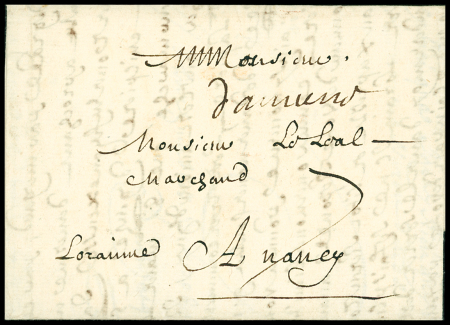 Monsieur
damiens
Monsieur Le Leal
Marchand
Lorainne A nancy